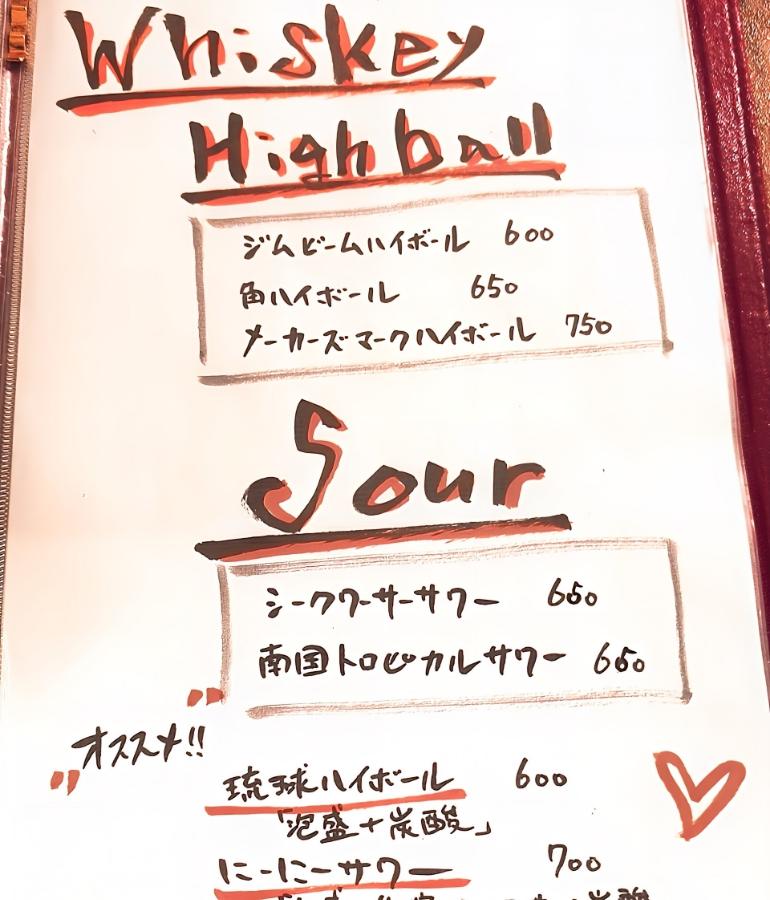 Whiskey
Highball
ジムビームハイボール 600
角ハイボール 650
メーカーズマークハイボール 750
Sour
シークワーサーサワー 650
南国トロピカルサワー 650
"オススメ!!"
琉球ハイボール 600
「泡盛+炭酸」
にーにーサワー 700
炭酸